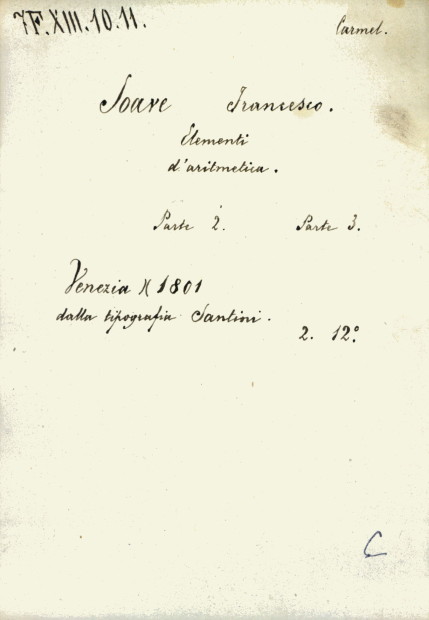 7F.XIII.10.11.
Carmel.
Soave Francesco.
Elementi
d'aritmetica.
Parte 2. Parte 3.
Venezia X 1801
dalla tipografia Santini.
2. 12°.
C